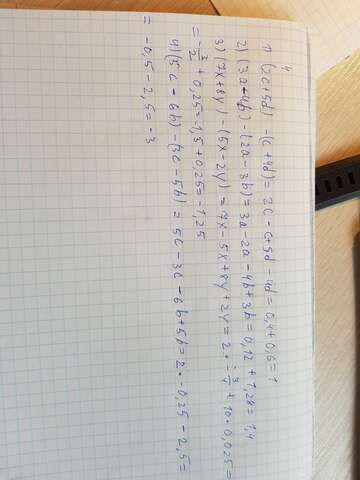 4
1) (2c+5d) - (c+4d) = 2c - c + 5d - 4d = 0,4 + 0,6 = 1
2) (3a+4b) - (2a - 3b) = 3a - 2a - 4b + 3b = 0,12 + 1,28 = 1,4
3) (7x+8y) - (5x - 2y) = 7x - 5x + 8y + 2y = 2 · -3/4 + 10 · 0,025 =
= -3/2 + 0,25 = -1,5 + 0,25 = -1,25
4) (5c - 6b) - (3c - 5b) = 5c - 3c - 6b + 5b = 2 · -0,25 - 2,5 =
= -0,5 - 2,5 = -3